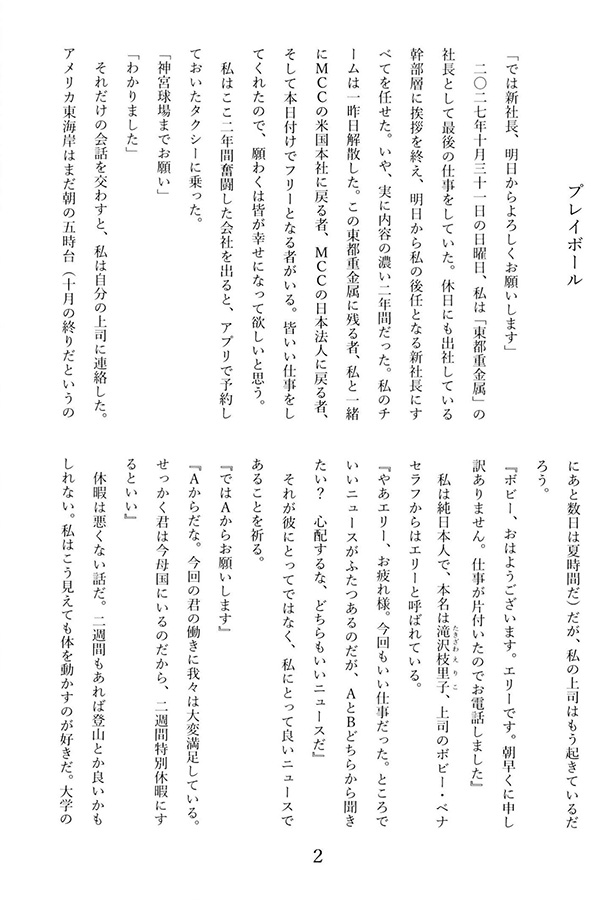 プレイボール
「では新社長、明日からよろしくお願いします」
二〇二七年十月三十一日の日曜日、私は「東都重金属」の
社長として最後の仕事をしていた。休日にも出社している
幹部層に挨拶を終え、明日から私の後任となる新社長にす
べてを任せた。いや、実に内容の濃い二年間だった。私のチ
ームは一昨日解散した。この東都重金属に残る者、私と一緒
にMCCの米国本社に戻る者、MCCの日本法人に戻る者、
そして本日付けでフリーとなる者がいる。皆いい仕事をし
てくれたので、願わくは皆が幸せになって欲しいと思う。
私はここ二年間奮闘した会社を出ると、アプリで予約し
ておいたタクシーに乗った。
「神宮球場までお願い」
「わかりました」
それだけの会話を交わすと、私は自分の上司に連絡した。
アメリカ東海岸はまだ朝の五時台（十月の終りだというの
にあと数日は夏時間だ）だが、私の上司はもう起きているだ
ろう。
『ボビー、おはようございます。エリーです。朝早くに申し
訳ありません。仕事が片付いたのでお電話しました』
私は純日本人で、本名は滝沢枝里子、上司のボビー・ペナ
たきざわえりこ
セラフからはエリーと呼ばれている。
『やあエリー、お疲れ様。今回もいい仕事だった。ところで
いいニュースがふたつあるのだが、AとBどちらから聞き
たい？　心配するな、どちらもいいニュースだ』
それが彼にとってではなく、私にとって良いニュースで
あることを祈る。
『ではAからお願いします』
『Aからだな。今回の君の働きに我々は大変満足している。
せっかく君は今母国にいるのだから、二週間特別休暇にす
るといい』
休暇は悪くない話だ。二週間もあれば登山とか良いかも
しれない。私はこう見えても体を動かすのが好きだ。大学の
2